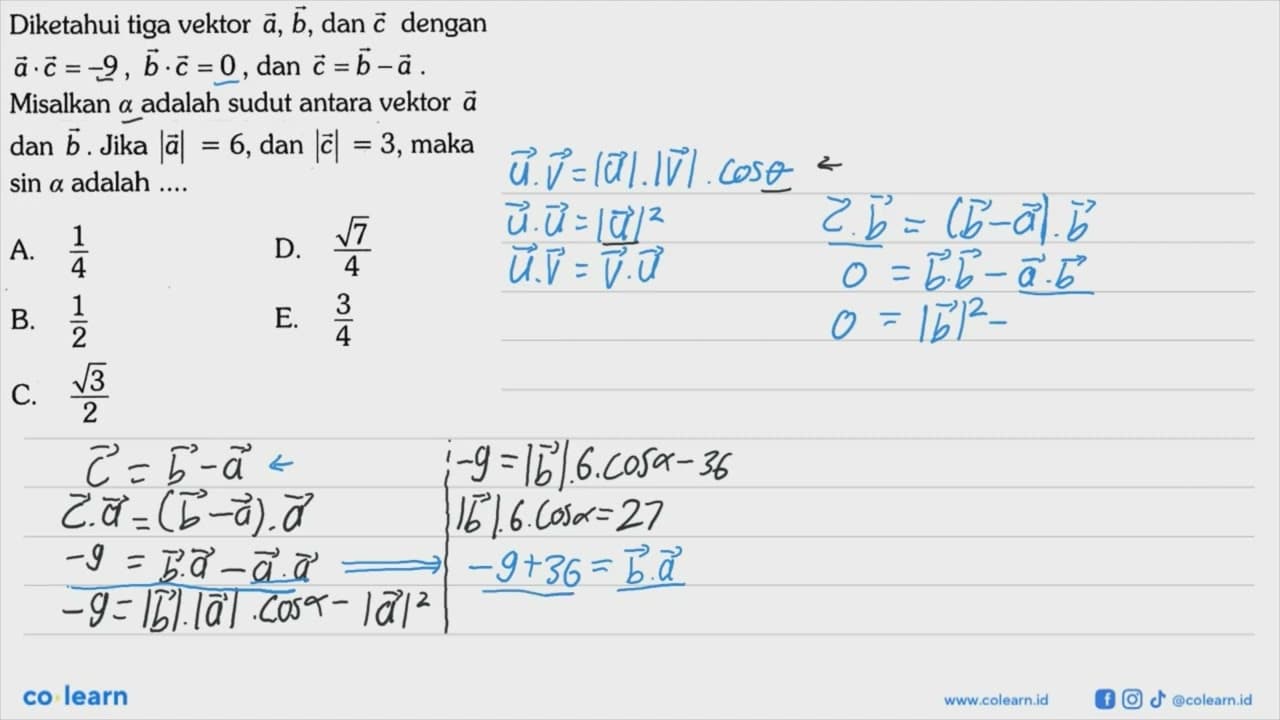 Diketahui tiga vektor a⃗, b⃗, dan c⃗ dengan
a⃗ · c⃗ = –9, b⃗ · c⃗ = 0, dan c⃗ = b⃗ – a⃗.
Misalkan α adalah sudut antara vektor a⃗
dan b⃗. Jika |a⃗| = 6, dan |c⃗| = 3, maka
sin α adalah ....
A. 1/4
B. 1/2
C. √3/2
D. √7/4
E. 3/4
u⃗.v⃗ = |u⃗|.|v⃗|.cosθ ←
u⃗.u⃗ = |u⃗|²
u⃗.v⃗ = v⃗.u⃗
c⃗.b⃗ = (b⃗–a⃗).b⃗
0 = b⃗.b⃗ – a⃗.b⃗
0 = |b⃗|² –
c⃗ = b⃗ – a⃗ ←
c⃗.a⃗ = (b⃗–a⃗).a⃗
–9 = b⃗.a⃗ – a⃗.a⃗ ⟹
–9 = |b⃗|.|a⃗|.cosα – |a⃗|²
–9 = |b⃗|.6.cosα – 36
|b⃗|.6.cosα = 27
–9+36 = b⃗.a⃗
co learn
www.colearn.id
@colearn.id